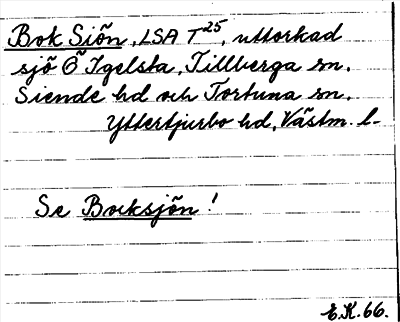 Bok Siön, LSA T25, uttorkad
sjö Ö Igelsta, Tillberga sn,
Siende hd och Tortuna sn,
Yttertjurbo hd, Västm. l.
Se Bocksjön!
E.K. 66.